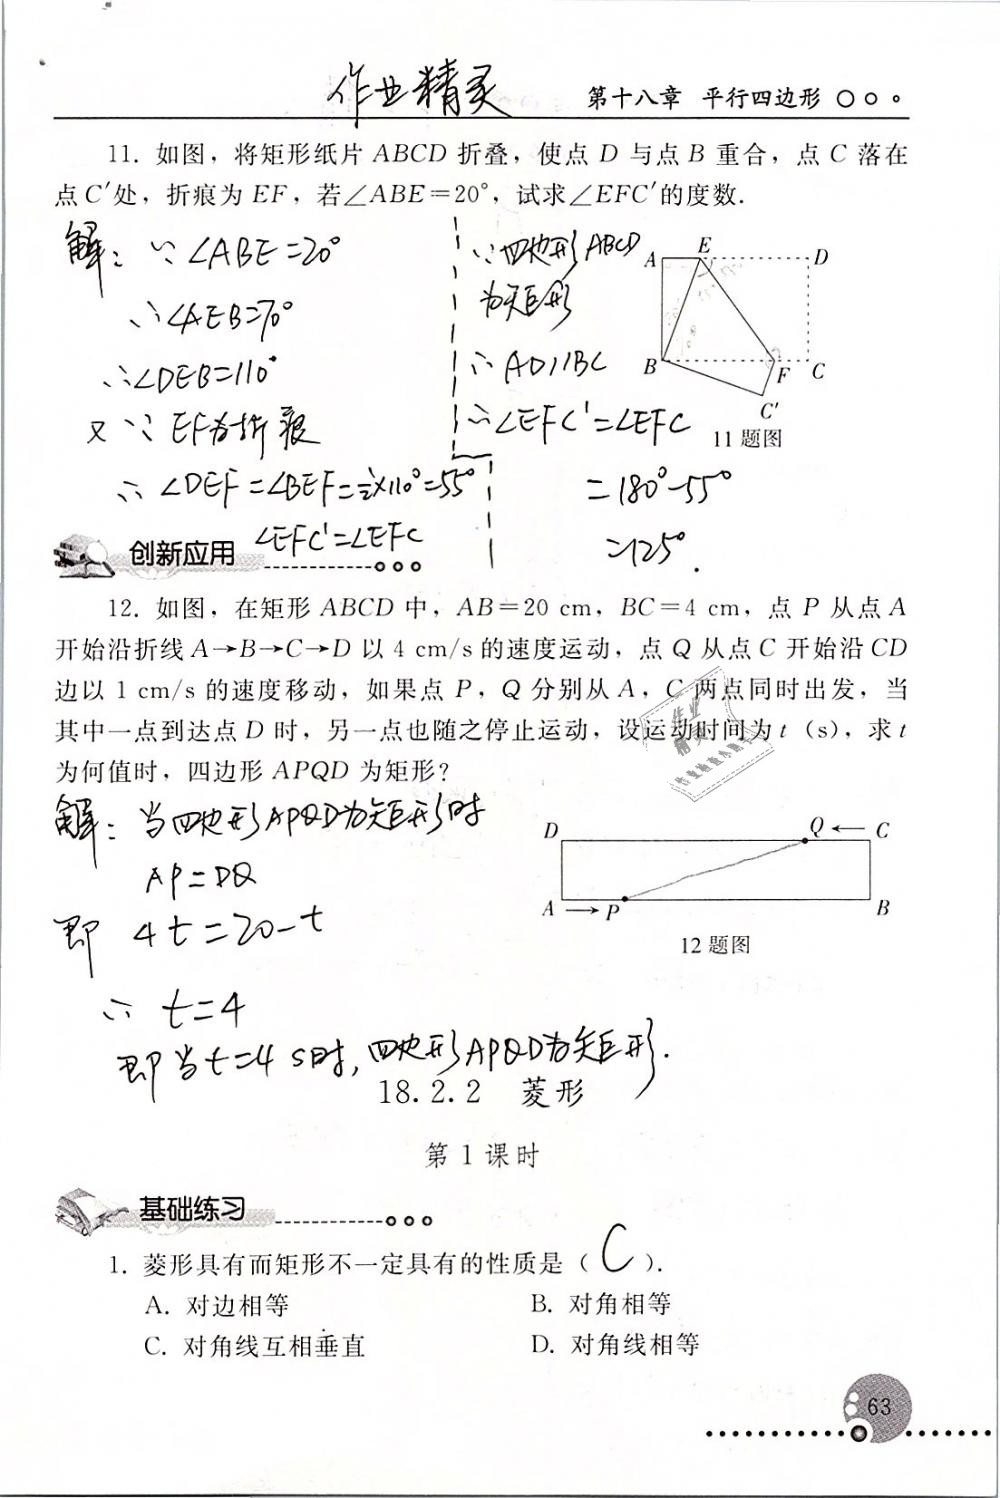 作业精灵
第十八章 平行四边形
11. 如图，将矩形纸片 ABCD 折叠，使点 D 与点 B 重合，点 C 落在
点 C′处，折痕为 EF，若∠ABE＝20°，试求∠EFC′的度数．
解：∵∠ABE=20°
∴∠AEB=70°
∴∠DEB=110°
又∵EF为折痕
∴∠DEF=∠BEF=½×110°=55°
∠EFC'=∠EFC
∵四边形ABCD
为矩形
∴AD//BC
∴∠EFC'=∠EFC
=180°-55°
=125°.
A E D
B F C
C′
11 题图
创新应用
12. 如图，在矩形 ABCD 中，AB＝20 cm，BC＝4 cm，点 P 从点 A
开始沿折线 A→B→C→D 以 4 cm/s 的速度运动，点 Q 从点 C 开始沿 CD
边以 1 cm/s 的速度移动，如果点 P，Q 分别从 A，C 两点同时出发，当
其中一点到达点 D 时，另一点也随之停止运动，设运动时间为 t（s），求 t
为何值时，四边形 APQD 为矩形？
解：当四边形APQD为矩形时
AP=DQ
即 4t=20-t
∴ t=4
即当t=4 s时，四边形APQD为矩形.
D Q ← C
A → P B
12 题图
18.2.2 菱形
第 1 课时
基础练习
1. 菱形具有而矩形不一定具有的性质是（ C ）．
A. 对边相等 B. 对角相等
C. 对角线互相垂直 D. 对角线相等
63